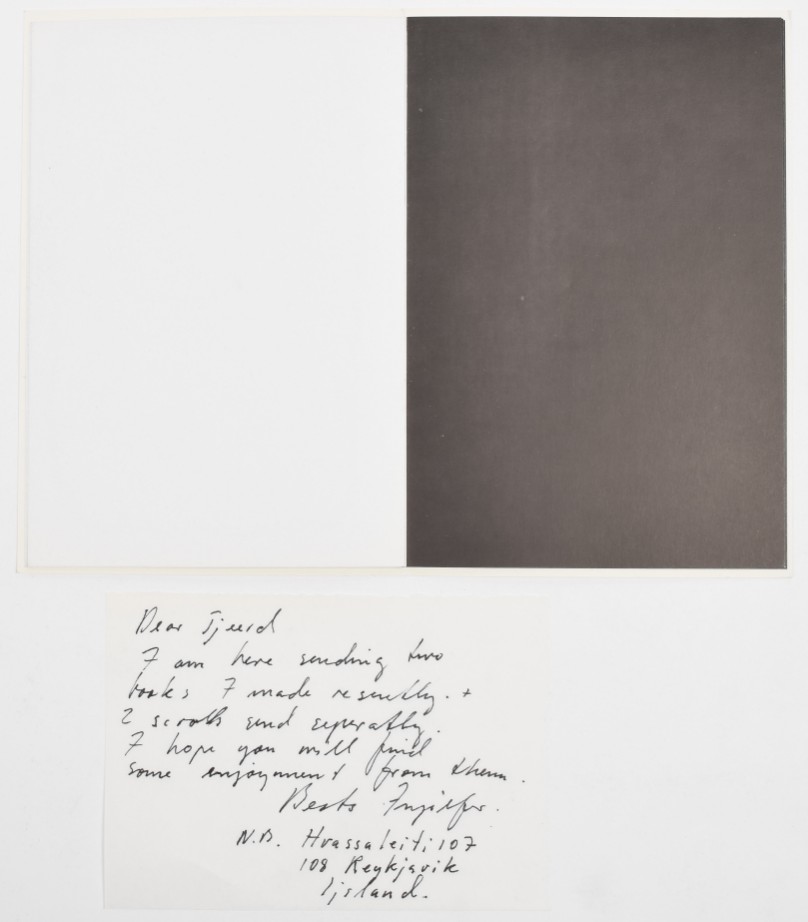 Dear Tjeerd
I am here sending two
books I made resently. +
2 scrolls send seperatly.
I hope you will find
some enjoynment from them.
Bests Ingilfur.
N.B. Hvassaleiti 107
108 Reykjavik
Ijsland.